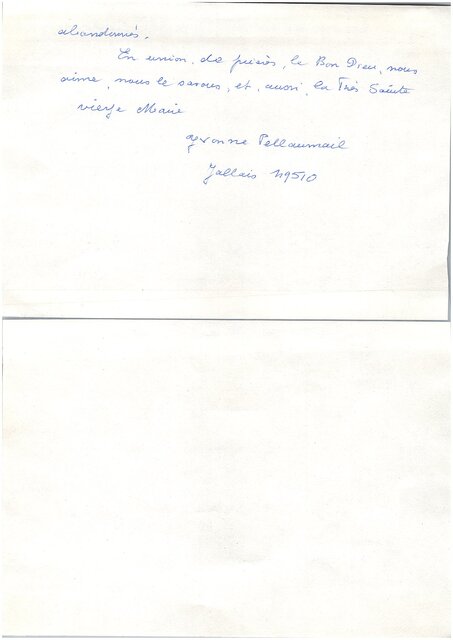 abandonnés.
En union, de prières, le Bon Dieu, nous
aime, nous le savons, et, aussi, la Très Sainte
vierge Marie
Yvonne Pellaumail
Jallais 49510